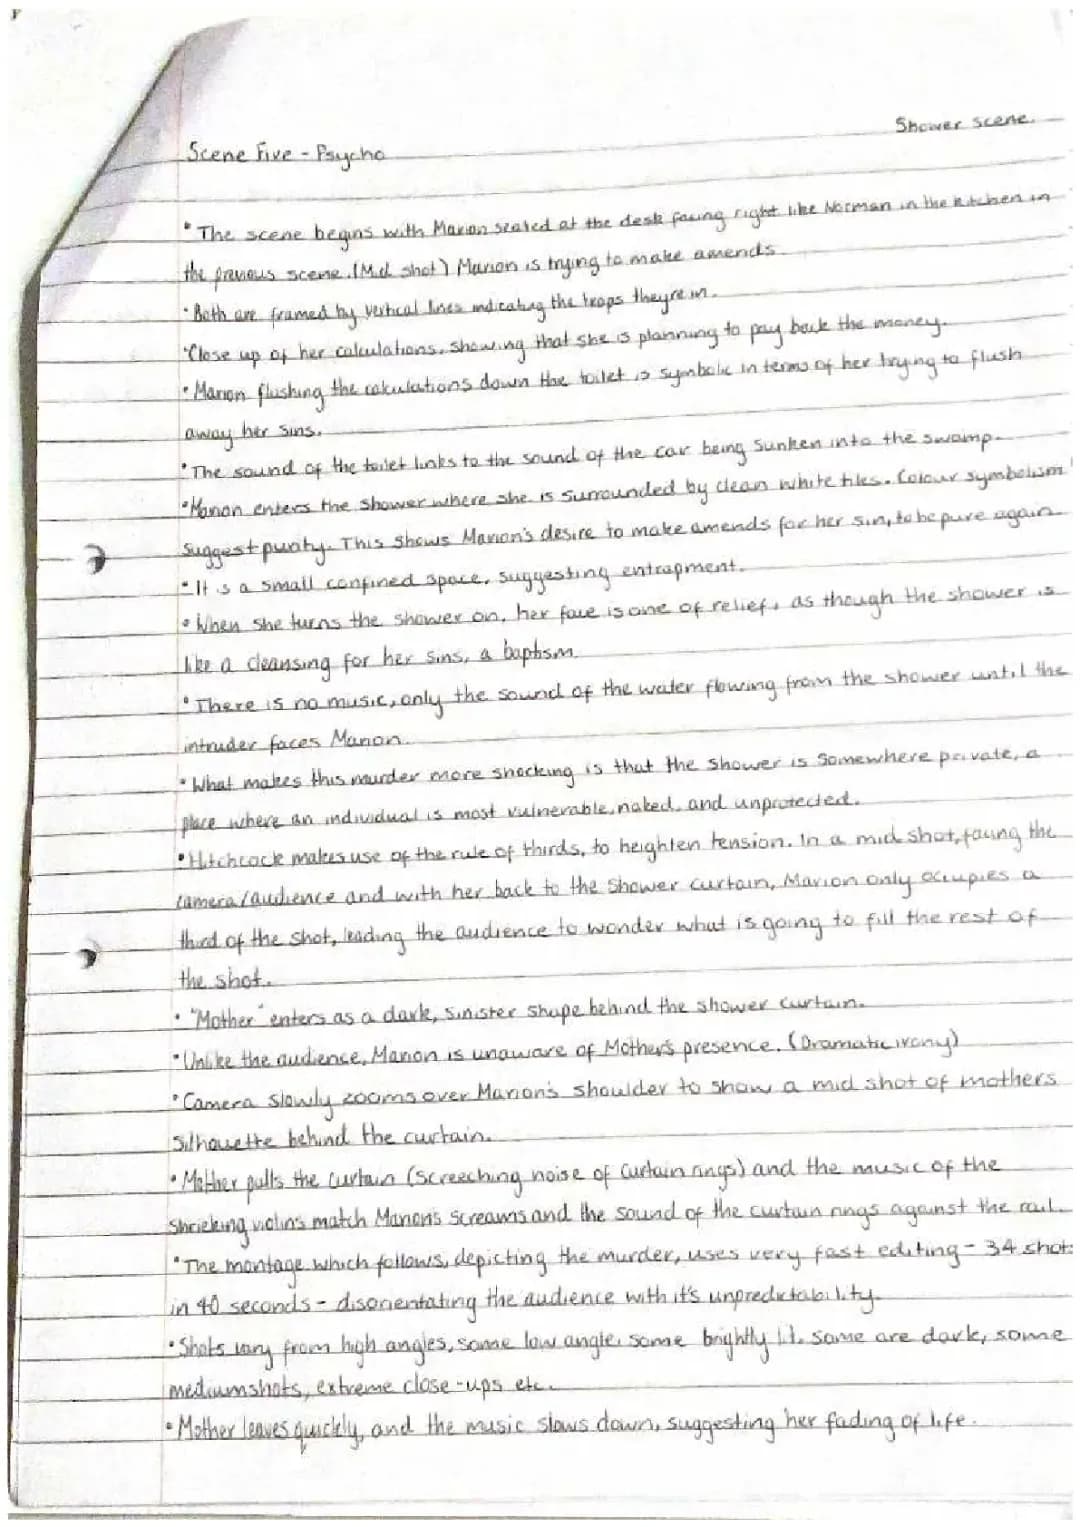 Shower scene.
Scene Five - Psycho
• The scene begins with Marion seated at the desk facing right like Norman in the kitchen in
the previous scene. (Mid shot) Marion is trying to make amends.
• Both are framed by vertical lines indicating the traps theyre in.
• Close up of her calculations, showing that she is planning to pay back the money.
• Marion flushing the calculations down the toilet is symbolic in terms of her trying to flush
away her sins.
• The sound of the toilet links to the sound of the car being sunken into the swamp.
• Marion enters the shower where she is surrounded by clean white tiles. Colour symbolism
suggest purity. This shows Marion's desire to make amends for her sin, to be pure again.
• It is a small confined space, suggesting entrapment.
• When she turns the shower on, her face is one of relief, as though the shower is
like a cleansing for her sins, a baptism.
• There is no music, only the sound of the water flowing from the shower until the
intruder faces Marion.
• What makes this murder more shocking is that the shower is somewhere private, a
place where an individual is most vulnerable, naked, and unprotected.
• Hitchcock makes use of the rule of thirds, to heighten tension. In a mid shot, facing the
camera/audience and with her back to the shower curtain, Marion only occupies a
third of the shot, leading the audience to wonder what is going to fill the rest of
the shot.
• "Mother" enters as a dark, sinister shape behind the shower curtain.
• Unlike the audience, Marion is unaware of Mother's presence. (Dramatic irony)
• Camera slowly zooms over Marion's shoulder to show a mid shot of mothers
silhouette behind the curtain.
• Mother pulls the curtain (screeching noise of curtain rings) and the music of the
shrieking violins match Marion's screams and the sound of the curtain rings against the rail.
• The montage which follows, depicting the murder, uses very fast editing - 34 shots
in 40 seconds - disorientating the audience with it's unpredictability.
• Shots vary from high angles, some low angle, some brightly lit. Some are dark, some
mediumshots, extreme close-ups etc.
• Mother leaves quickly, and the music slows down, suggesting her fading of life.